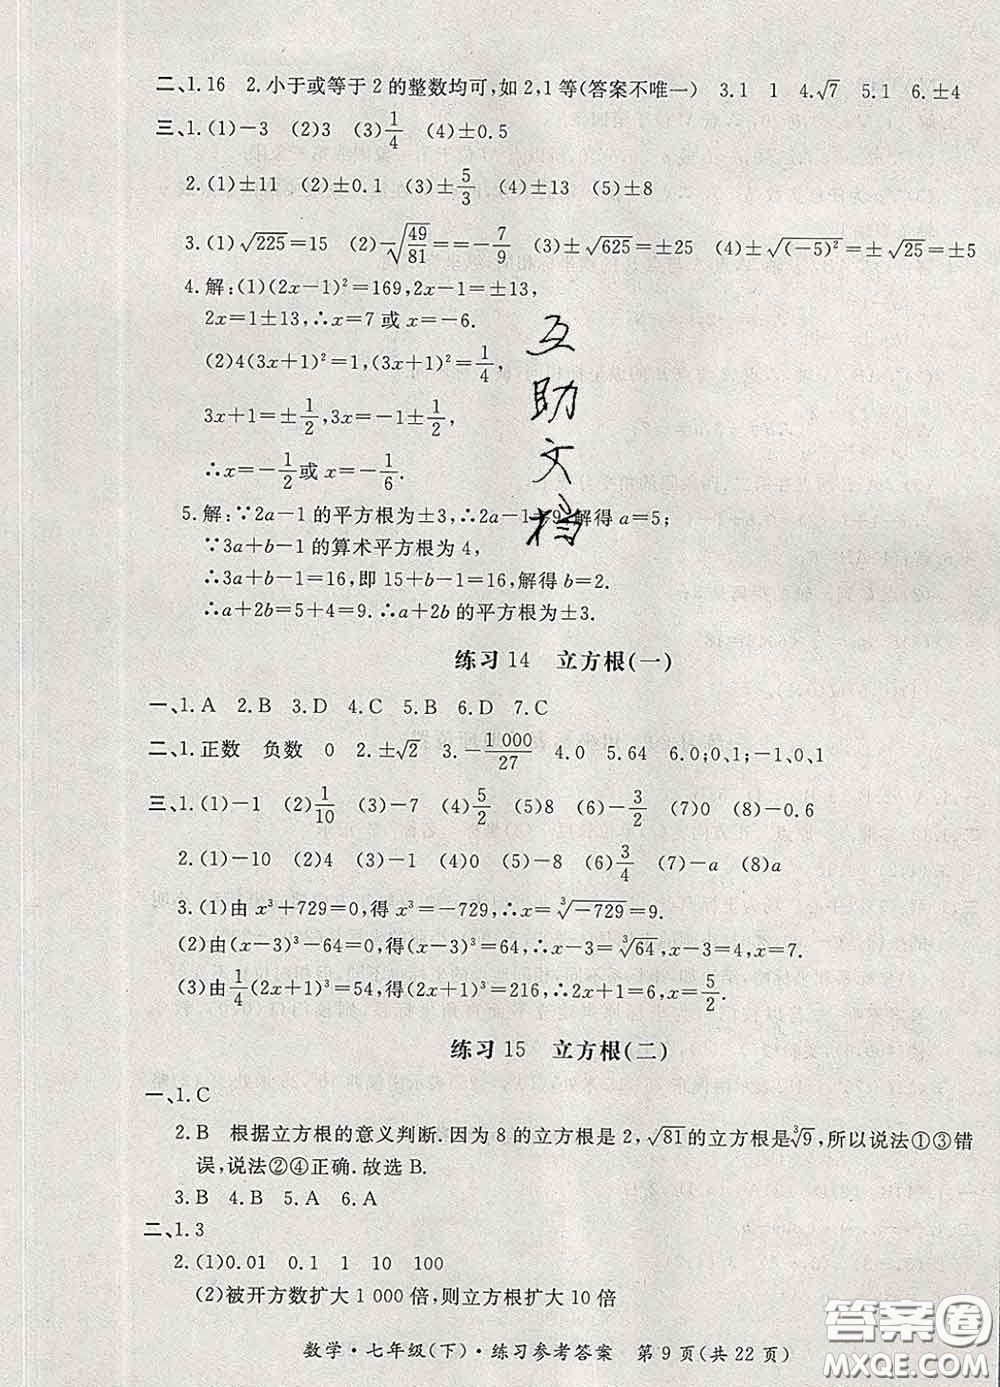 二、1.16 2.小于或等于2的整数均可,如2,1等(答案不唯一) 3.1 1 4.√7 5.1 6.±4
三、1.(1)-3 (2)3 (3)1/4 (4)±0.5
2.(1)±11 (2)±0.1 (3)±5/3 (4)±13 (5)±8
3.(1)√225=15 (2)-√(49/81)==-7/9 (3)±√625=±25 (4)±√((-5)²)=±√25=±5
4.解:(1)(2x-1)²=169,2x-1=±13,
2x=1±13,∴x=7或x=-6.
(2)4(3x+1)²=1,(3x+1)²=1/4,
3x+1=±1/2,3x=-1±1/2,
∴x=-1/2或x=-1/6.
5.解:∵2a-1的平方根为±3,∴2a-1=9,解得a=5;
∵3a+b-1的算术平方根为4,
∴3a+b-1=16,即15+b-1=16,解得b=2.
∴a+2b=5+4=9.∴a+2b的平方根为±3.
互助文档
练习14 立方根(一)
一、1.A 2.B 3.D 4.C 5.B 6.D 7.C
二、1.正数 负数 0 2.±√2 3.-1 000/27 4.0 5.64 6.0;0、1;-1、0、1
三、1.(1)-1 (2)1/10 (3)-7 (4)5/2 (5)8 (6)-3/2 (7)0 (8)-0.6
2.(1)-10 (2)4 (3)-1 (4)0 (5)-8 (6)3/4 (7)-a (8)a
3.(1)由x³+729=0,得x³=-729,∴x=∛-729=9.
(2)由(x-3)³-64=0,得(x-3)³=64,∴x-3=∛64,x-3=4,x=7.
(3)由1/4(2x+1)³=54,得(2x+1)³=216,∴2x+1=6,x=5/2.
练习15 立方根(二)
一、1.C
2.B 根据立方根的意义判断.因为8的立方根是2,√81的立方根是∛9,所以说法①③错
误,说法②④正确.故选B.
3.B 4.B 5.A 6.A
二、1.3
2.(1)0.01 0.1 1 10 100
(2)被开方数扩大1 000倍,则立方根扩大10倍
数学·七年级(下)·练习参考答案 第9页(共22页)
答案圈
MXQE.COM